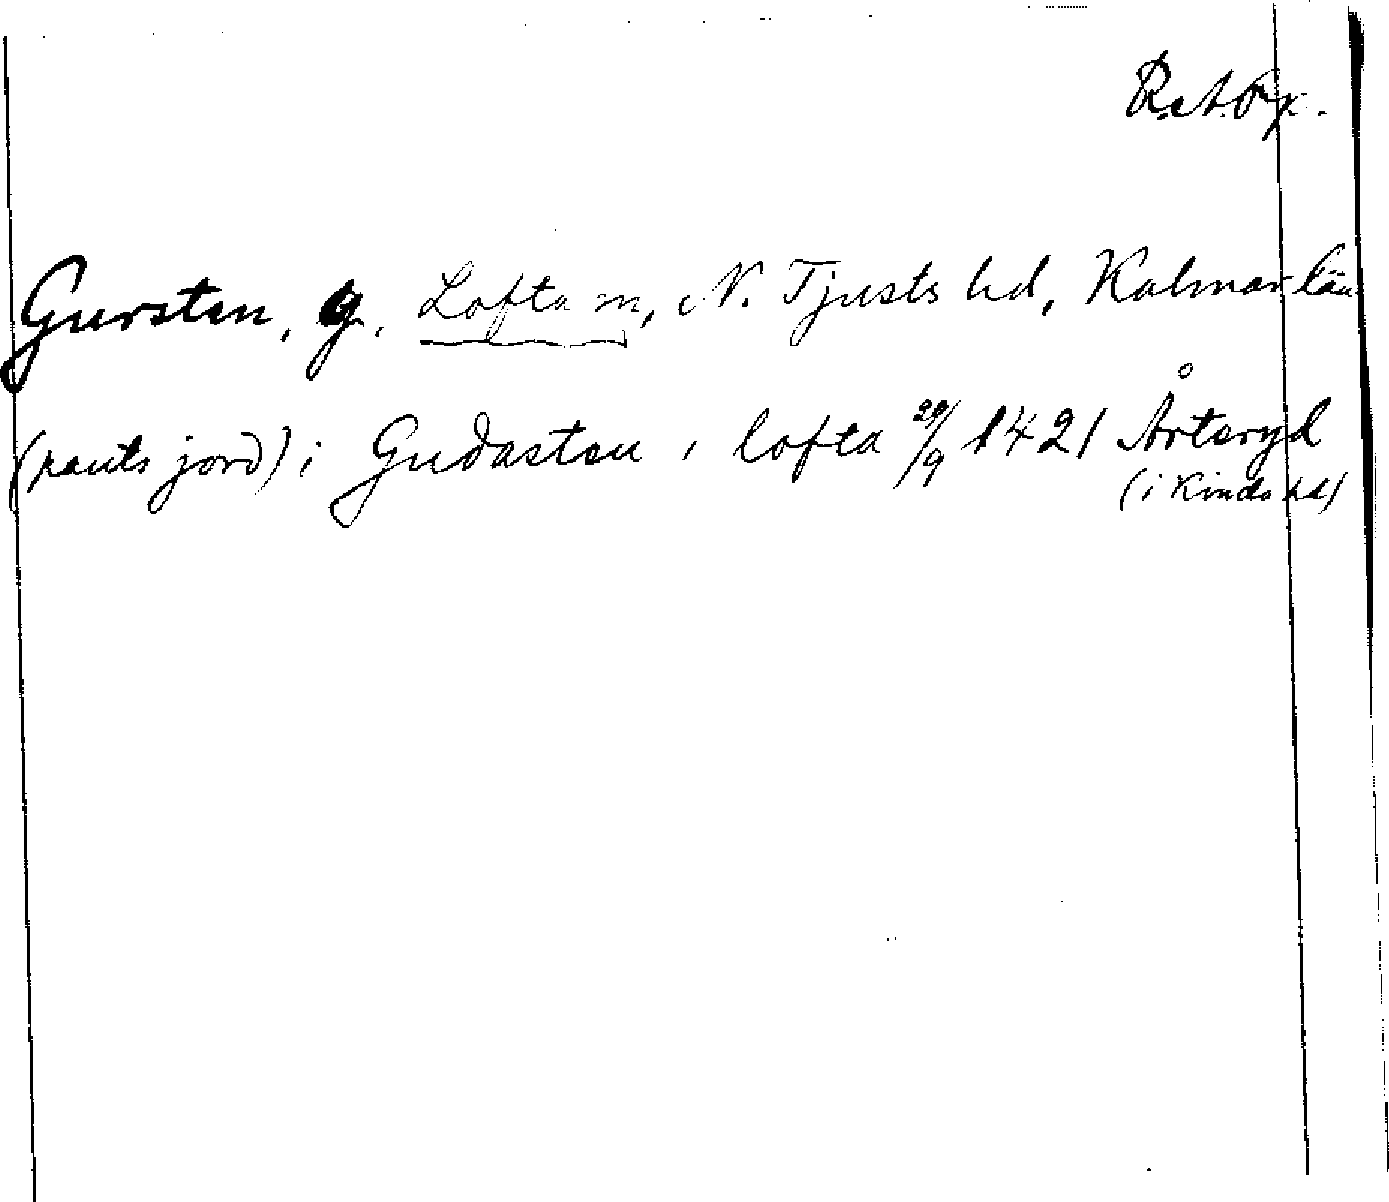 R.A.Ox.
Gursten, g. Lofta sn, N. Tjusts hd, Kalmar län
(pauts jord) i Gudasten i lofta 29/9 1421 Årteryd
(i Kinds hd)